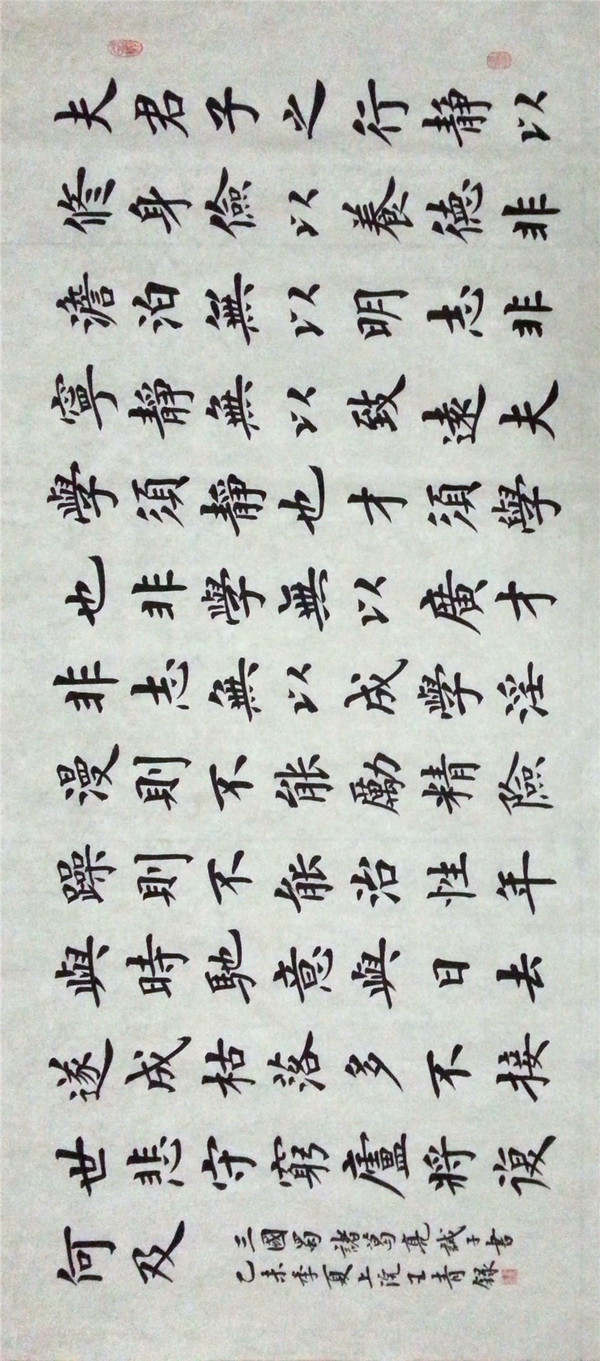 夫君子之行靜以
修身儉以養德非
澹泊無以明志非
寧靜無以致遠夫
學須靜也才須學
也非學無以廣才
非志無以成學淫
漫則不能勵精險
躁則不能治性年
與時馳意與日去
遂成枯落多不接
世悲守窮廬將復
何及
三國蜀諸葛亮誡子書
己未季夏上浣王青録